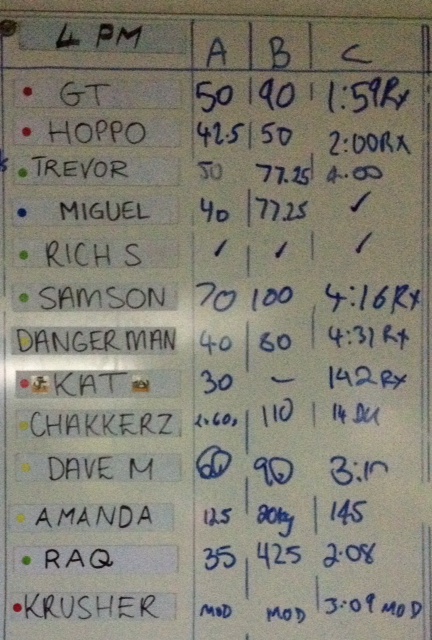 4 PM A B C
GT 50 90 1:59 Rx
HOPPO 42.5 50 2:00 RX
TREVOR 50 77.25
MIGUEL 40 77.25 ✓
RICH S ✓ ✓ ✓
SAMSON 70 100 4:16 Rx
DANGERMAN 40 4:31 Rx
KAT 30 – 142 Rx
CHAKKERZ 110
DAVE M 60 90
AMANDA 125 20kg 145
RAQ 35 425 2:08
KRUSHER MOD MOD 3:09 MOD